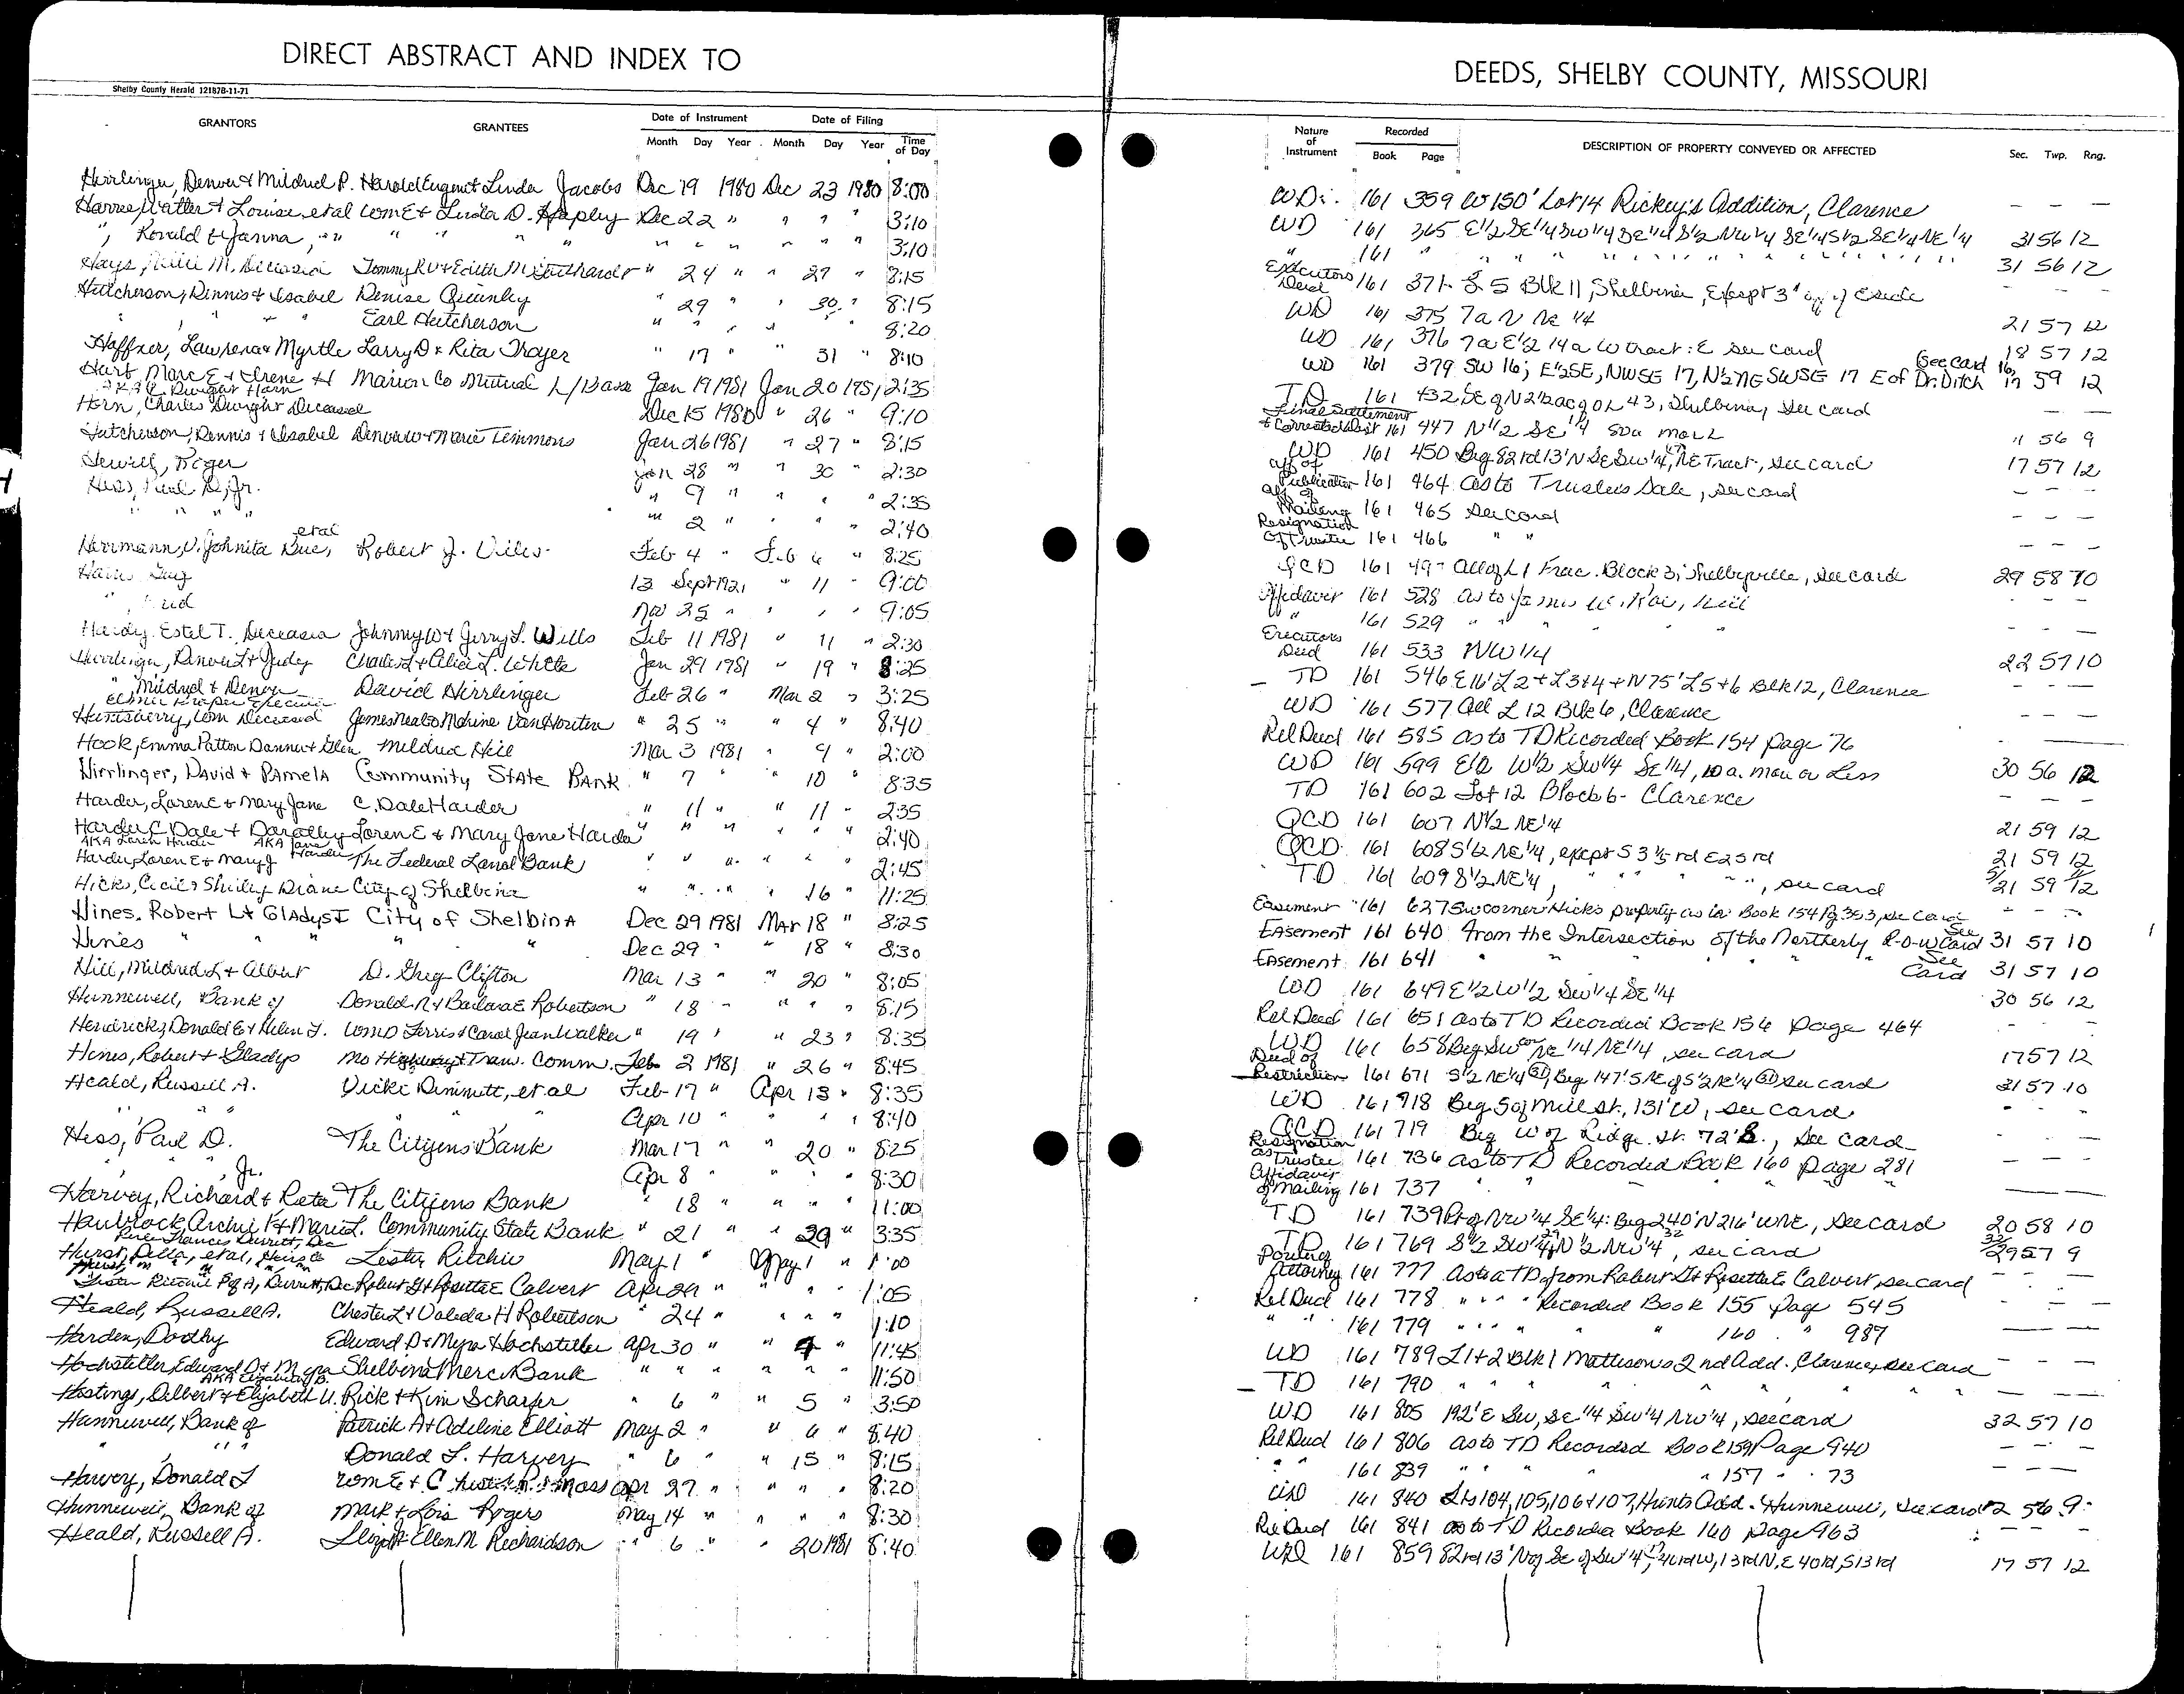 DIRECT ABSTRACT AND INDEX TO
Shelby County Herald 121878-11-71
GRANTORS GRANTEES Date of Instrument Date of Filing
Month Day Year Month Day Year Time of Day
Hirrlinger, Denver & Mildred P. Harold Eugene & Linda Jacobs Dec 19 1980 Dec 23 1980 8:00
Walter & Louise, etal Wm E & Linda D. Hapley Dec 22 " " " " 3:10
", Ronald & " " " " " " " " " " 3:10
Hays, M. Deceased Tommy & Edith M. " 24 " " 29 " 8:15
Hutcherson, Dennis & Isabel Denise Quinley " 29 " " 30 " 8:15
" " " " Earl Hutcherson " " " " " " 8:20
Haffner, Lawrence & Myrtle Larry D & Rita Troyer " 17 " " 31 " 8:10
Hurt, Marc E & Irene H Marion Co Mutual Jan 19 1981 Jan 20 1981 2:35
AKA C. Dwight Horn
Horn, Charles Dwight Deceased Dec 15 1980 " 26 " 9:10
Hutcherson, Dennis & Isabel Denver W & Marie Timmons Jan 26 1981 " 27 " 8:15
Hewitt, Roger Jan 28 " " 30 " 2:30
Hess, Paul D, Jr. " 9 " " " " 2:35
" " " " " 2 " " " " 2:40
etal
Herrmann, V. Johnita Sue, Robert J. Feb 4 " Feb 6 " 8:25
13 Sept 1921 " 11 " 9:00
" Nov 25 " " " " 9:05
Hardy, Estel T. Deceased Johnny W & Jerry L. Wills Feb 11 1981 " 11 " 2:30
Hirrlinger, Denver L & Judy Charles L & Alicia L. White Jan 29 1981 " 19 " 8:25
" Mildred & Denver David Hirrlinger Feb 26 " Mar 2 " 3:25
Huntsberry, Wm Deceased James Neal & Maxine VanHouten " 25 " " 4 " 8:40
Hook, Emma Patton Danner & Glen Mildred Hill Mar 3 1981 " 9 " 2:00
Hirrlinger, David & Pamela Community State Bank " 7 " " 10 " 8:35
Harder, Loren E & Mary Jane C. Dale Harder " 11 " " 11 " 2:35
Harder C. Dale & Dorothy Loren E & Mary Jane Harder " " " " " " 2:40
AKA Loren Harder AKA Jane Harder
Harder, Loren E & Mary J The Federal Land Bank " " " " " " 2:45
Hicks, Cecil & Shirley Diane City of Shelbina " " " " 16 " 11:25
Hines, Robert L & Gladys I City of Shelbina Dec 29 1981 Mar 18 " 8:25
Hines " " " " " Dec 29 " " 18 " 8:30
Hill, Mildred L & Albert D. Greg Clifton Mar 13 " " 20 " 8:05
Hunnewell, Bank of Donald R & Barbara E Robertson " 18 " " " " 8:15
Hendricks, Donald E & Helen J. Wm D Ferris & Carol Jean Walker " 19 " " 23 " 8:35
Hines, Robert & Gladys Mo Highway & Tran. Comm. Feb 2 1981 " 26 " 8:45
Heald, Russell A. Vicki Dimmitt, et al Feb 17 " Apr 13 " 8:35
" " " " " Apr 10 " " " " 8:40
Hess, Paul D. The Citizens Bank Mar 17 " " 20 " 8:25
" , Jr. Apr 8 " " " " 8:30
Harvey, Richard & Reta The Citizens Bank " 18 " " " " 11:00
Archie F & Marie L. Community State Bank " 21 " " 29 " 3:35
Hurst, Della, etal, Heirs of Lester Ritchie May 1 " May 1 " 1:00
Lester Ritchie P of A, Durrett, Dec Robert G & Rosetta E Calvert Apr 29 " " " " 1:05
Heald, Russell A. Chester L & Valeda H Robertson " 24 " " " " 1:10
Harden, Dorthy Edward D & Myra Hochstetler Apr 30 " " 4 " 11:45
Hochstetler, Edward D & Myra Shelbina Merc Bank " " " " " " 11:50
AKA Elizabeth B.
Hastings, Delbert & Elizabeth U. Rick & Kim Scharfer " 6 " " 5 " 3:50
Hunnewell, Bank of Patrick A & Adeline Elliott May 2 " " 6 " 8:40
" " " Donald L. Harvey " 6 " " 15 " 8:15
Harvey, Donald L Wm E & C Moss Apr 27 " " " " 8:20
Hunnewell, Bank of Mark & Lois Rogers May 14 " " " " 8:30
Heald, Russell A. Lloyd & Ellen M Richardson " 6 " " 20 1981 8:40
DEEDS, SHELBY COUNTY, MISSOURI
Nature of Instrument Recorded Book Page DESCRIPTION OF PROPERTY CONVEYED OR AFFECTED Sec. Twp. Rng.
WD 161 359 W 150' Lot 14 Rickey's Addition, Clarence — — —
WD 161 365 E 1/2 SE 1/4 SW 1/4 SE 1/4 S 1/2 NW 1/4 SE 1/4 S 1/2 SE 1/4 NE 1/4 31 56 12
" 161 " " " " " 31 56 12
Executors Deed 161 371 & 5 Blk 11, Shelbina, Except 3' off of E side - - -
WD 161 375 7a N NE 1/4 21 57 12
WD 161 376 7a E 1/2 14a W tract: E see card 18 57 12
WD 161 379 SW 16; E 1/2 SE, NWSE 17, N 1/2 NE SWSE 17 E of Dr. Ditch (see card 16, 17 59 12
TD 161 432 SE of N 2 1/2 ac of OL 43, Shelbina, see card — —
Final Settlement & Corrected 161 447 N 1/2 SE 1/4 80a more L 11 56 9
WD 161 450 Beg 82rd 13' N SE SW 1/4, NE Tract, see card 17 57 12
Aff of Publication 161 464 as to Trustees Sale, see card - - -
Aff of Mailing 161 465 see card - - -
Resignation Of Trustee 161 466 " " - - -
QCD 161 49- All of L 1 Frac. Block 3, Shelbyville, see card 29 58 10
Affidavit 161 528 as to James W. - - -
" 161 529 " " " " - - -
Executors Deed 161 533 NW 1/4 22 57 10
TD 161 546 E 16' L 2 + L 3 + 4 + N 75' L 5 + 6 Blk 12, Clarence - - -
WD 161 577 All L 12 Blk 6, Clarence - - -
Rel Deed 161 585 as to TD Recorded Book 154 page 76
WD 161 599 E 1/2 W 1/2 SW 1/4 SE 1/4, 10 a. more or Less 30 56 12
TD 161 602 Lot 12 Block 6 - Clarence - - -
QCD 161 607 N 1/2 NE 1/4 21 59 12
QCD 161 608 S 1/2 NE 1/4, except S 3 1/5 rd E 25 rd 21 59 12
TD 161 609 S 1/2 NE 1/4, " " " ", see card 21 59 12
Easement 161 627 SW corner Hicks property as in Book 154 Pg 353, see Card - - -
Easement 161 640 from the Intersection of the Northerly R-O-W See Card 31 57 10
Easement 161 641 " " " " " See Card 31 57 10
WD 161 649 E 1/2 W 1/2 SW 1/4 SE 1/4 30 56 12
Rel Deed 161 651 as to TD Recorded Book 156 page 464 - - -
WD 161 658 Beg SW cor NE 1/4 NE 1/4, see card 17 57 12
Deed of Restriction 161 671 S 1/2 NE 1/4, Beg 147' S NE of S 1/2 NE 1/4 see card 31 57 10
WD 161 718 Beg S of Mill St., 131' W, see card - - -
QCD 161 719 Beg W of Ridge St. 72' S., see card - - -
Resignation as Trustee 161 736 as to TD Recorded Book 160 page 281 — — —
Affidavit of Mailing 161 737 " " " " " — —
TD 161 739 Pt of NW 1/4 SE 1/4: Beg 240' N 216' W NE, see card 20 58 10
TD 161 769 S 1/2 SW 1/4 29 N 1/2 NW 1/4 32, see card 32/29 57 9
Power of Attorney 161 777 As to a TD from Robert G & Rosetta E Calvert, see card - - -
Rel Deed 161 778 " " " Recorded Book 155 page 545 - - -
" " 161 779 " " " " " 160 " 987 — — —
WD 161 789 L 1 + 2 Blk 1 Mattesons 2nd Add. Clarence, see card - - -
TD 161 790 " " " " " " " — — —
WD 161 805 192' E SW, SE 1/4 SW 1/4 NW 1/4, see card 32 57 10
Rel Deed 161 806 as to TD Recorded Book 159 Page 940 - - -
" " 161 839 " " " " 157 " 73 — — —
WD 161 840 Lts 104, 105, 106 & 107, Hunts Add. Hunnewell, see card 2 56 9
Rel Deed 161 841 as to TD Recorded Book 160 page 963 - - -
WD 161 859 82rd 13' N of SE of SW 1/4, 40rd W, 13rd N, E 40rd, S 13rd 17 57 12